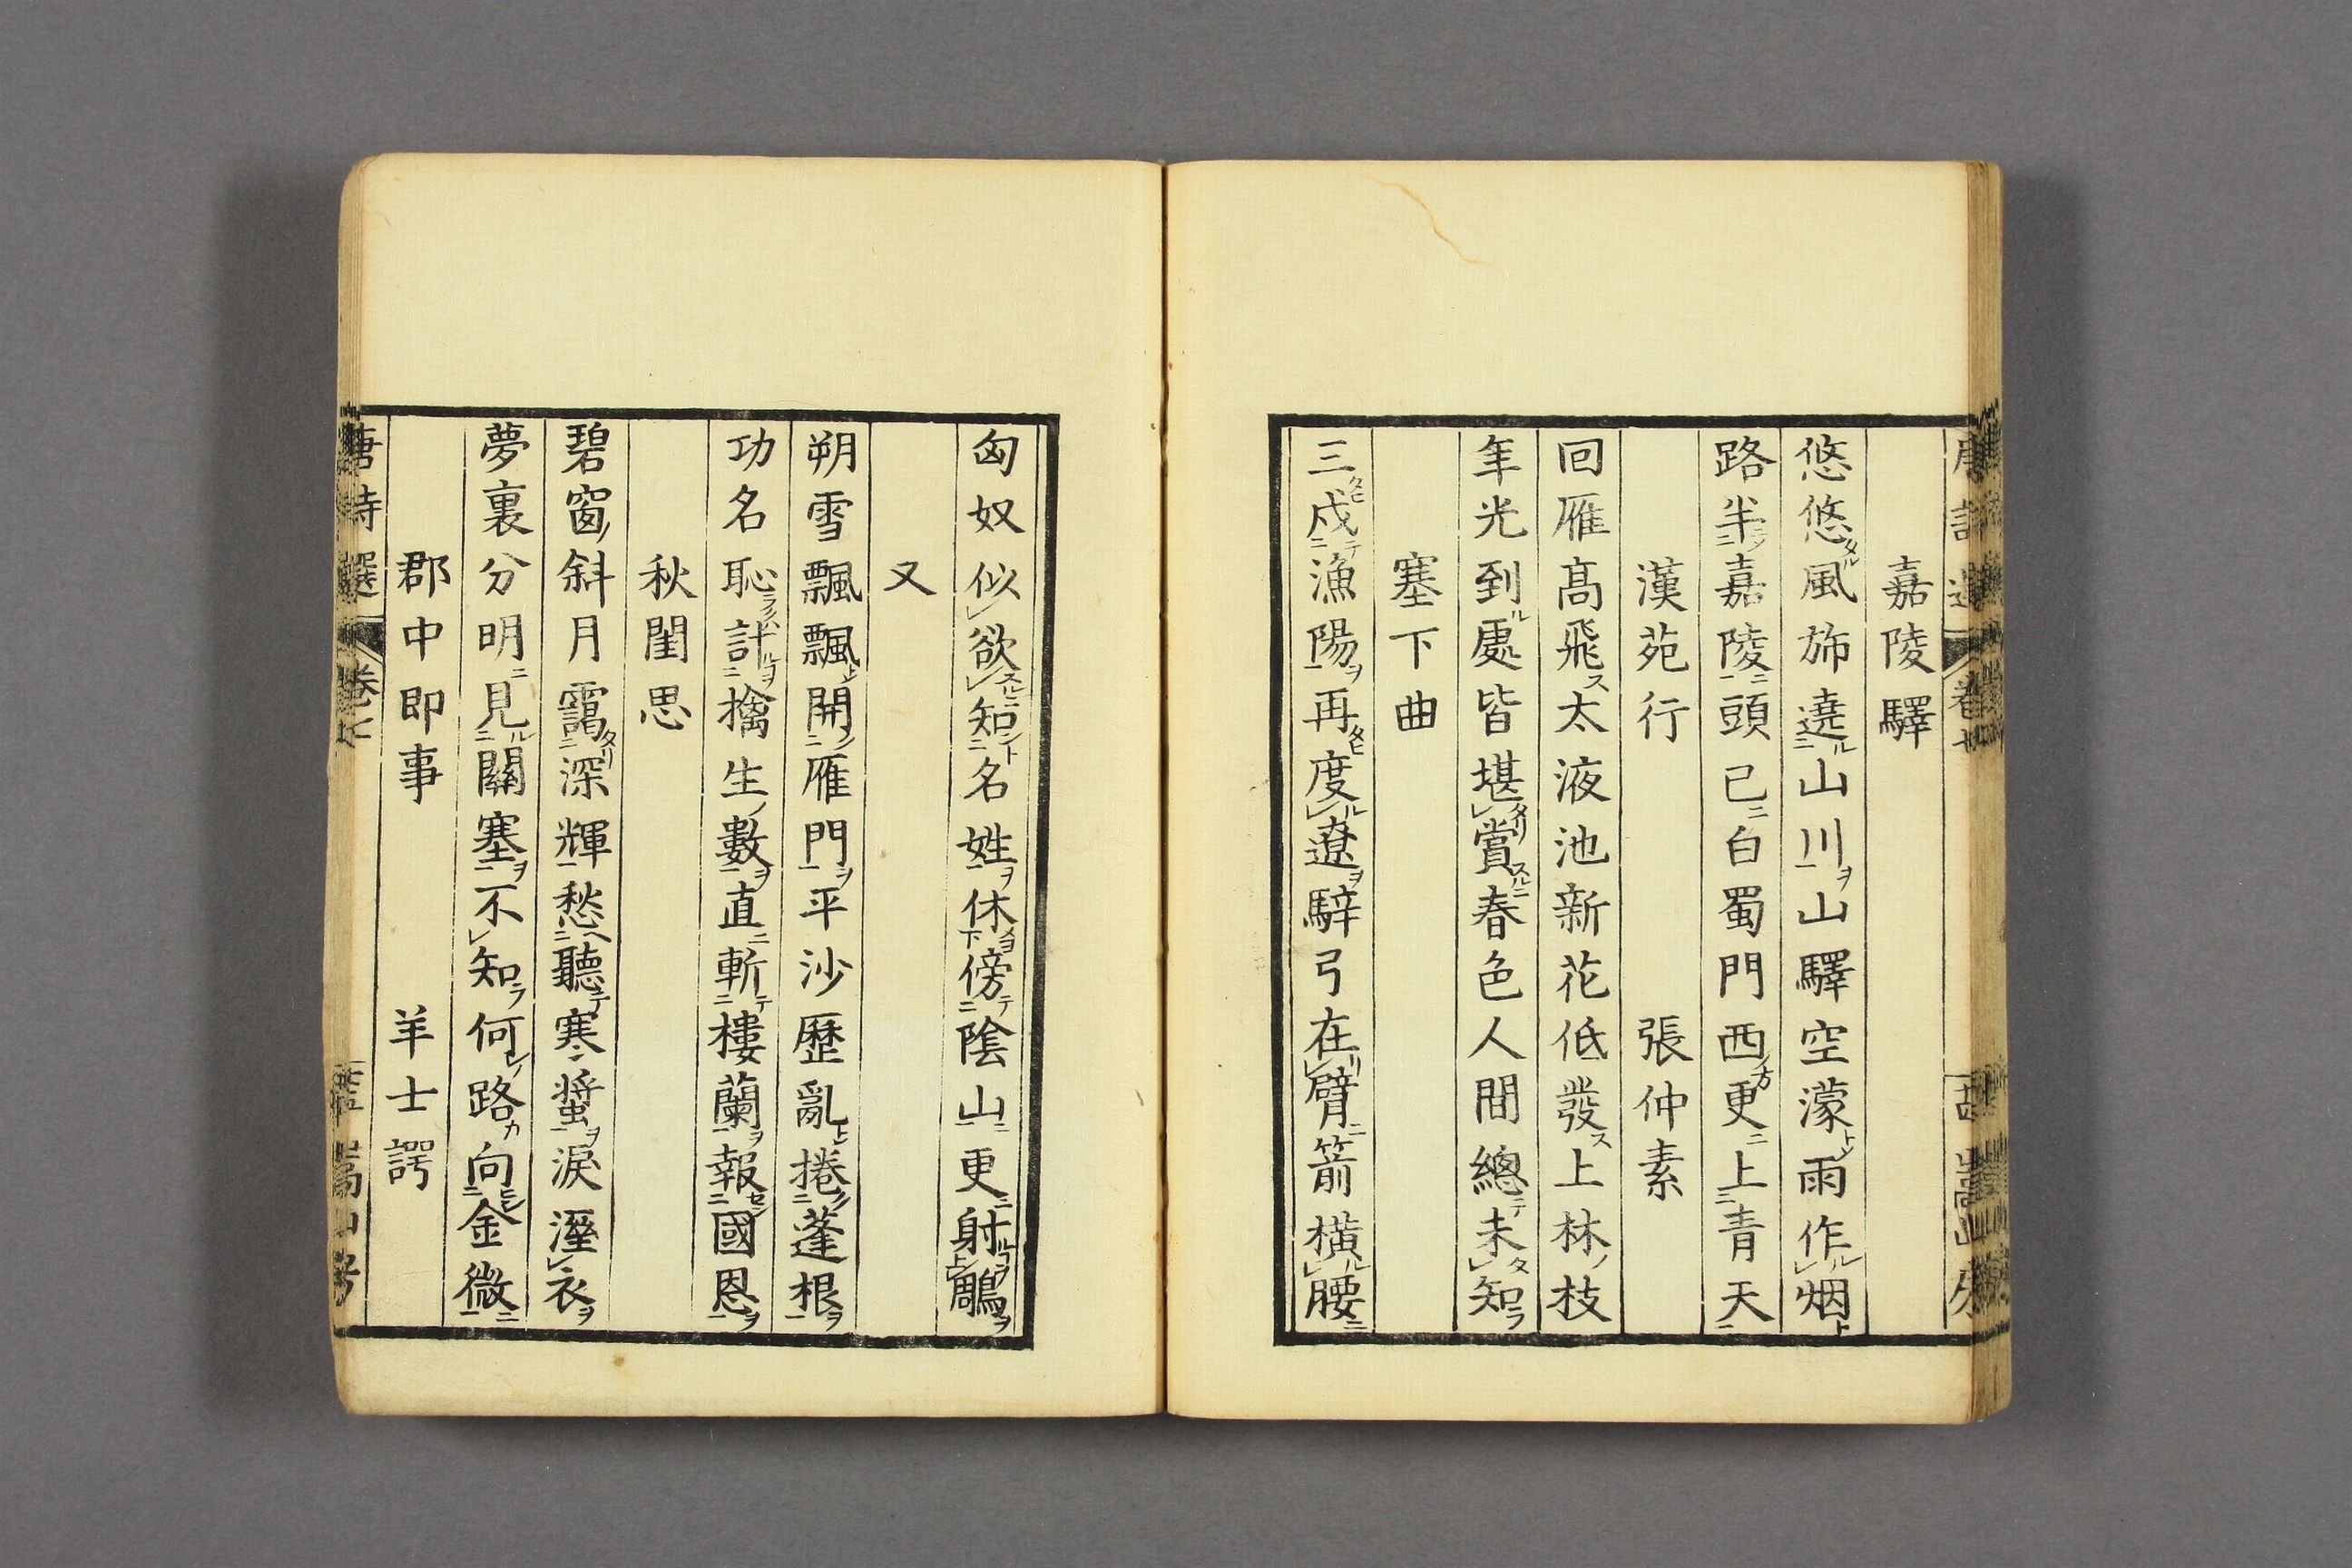 嘉陵驛
悠悠風斾遶山川山驛空濛雨作烟
路半嘉陵頭已白蜀門西更上青天
漢苑行 張仲素
回雁高飛太液池新花低發上林枝
年光到處皆堪賞春色人間總未知
塞下曲
三戍漁陽再度遼騂弓在臂箭橫腰
匈奴似欲知名姓休傍陰山更射鵰
又
朔雪飄飄開雁門平沙歷亂捲蓬根
功名恥計擒生數直斬樓蘭報國恩
秋閨思
碧窗斜月靄深輝愁聽寒螿淚溼衣
夢裏分明見關塞不知何路向金微
郡中即事 羊士諤
唐詩選 卷七